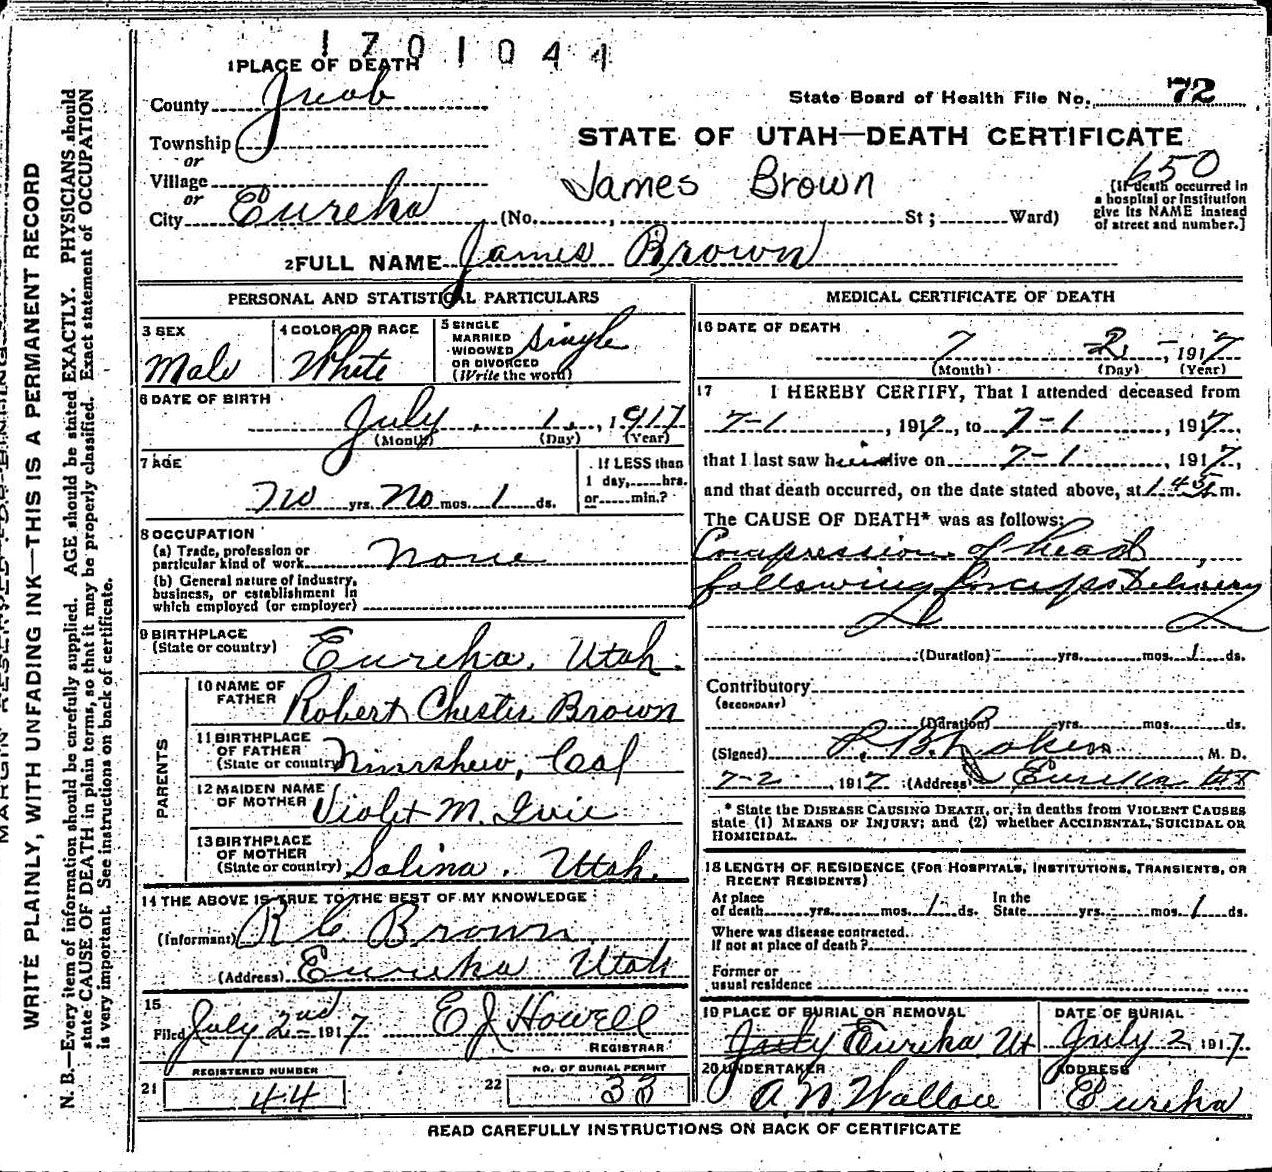 1701044
1 PLACE OF DEATH
County Juab
State Board of Health File No. 72
Township
or
STATE OF UTAH—DEATH CERTIFICATE
Village
or
James Brown
650
City Eureka (No. , St ; Ward)
(If death occurred in
a hospital or institution
give its NAME instead
of street and number.]
2 FULL NAME James Brown
PERSONAL AND STATISTICAL PARTICULARS
3 SEX
Male
4 COLOR OR RACE
White
5 SINGLE
MARRIED
WIDOWED
OR DIVORCED
(Write the word)
single
6 DATE OF BIRTH
July 1, 1917
(Month) (Day) (Year)
7 AGE
No yrs. No mos. 1 ds.
If LESS than
1 day, hrs.
or min.?
8 OCCUPATION
(a) Trade, profession or
particular kind of work None
(b) General nature of industry,
business, or establishment in
which employed (or employer)
9 BIRTHPLACE
(State or country) Eureka, Utah.
PARENTS
10 NAME OF
FATHER Robert Chester Brown
11 BIRTHPLACE
OF FATHER
(State or country) Nimshew, Cal
12 MAIDEN NAME
OF MOTHER Violet M. Ivie
13 BIRTHPLACE
OF MOTHER
(State or country) Salina, Utah.
14 THE ABOVE IS TRUE TO THE BEST OF MY KNOWLEDGE
(Informant) R C Brown
(Address) Eureka Utah
15
Filed July 2nd 1917 E J Howell
REGISTRAR
REGISTERED NUMBER
21 44
NO. OF BURIAL PERMIT
22 33
MEDICAL CERTIFICATE OF DEATH
16 DATE OF DEATH
7 2 - 1917
(Month) (Day) (Year)
17 I HEREBY CERTIFY, That I attended deceased from
7-1, 1917, to 7-1, 1917,
that I last saw him alive on 7-1, 1917,
and that death occurred, on the date stated above, at m.
The CAUSE OF DEATH* was as follows:
Compression of head
following forceps Delivery
(Duration) yrs. mos. 1 ds.
Contributory
(SECONDARY)
(Duration) yrs. mos. ds.
(Signed) M. D.
7-2, 1917 (Address) Eureka Ut
* State the DISEASE CAUSING DEATH, or, in deaths from VIOLENT CAUSES
state (1) MEANS OF INJURY; and (2) whether ACCIDENTAL, SUICIDAL OR
HOMICIDAL.
18 LENGTH OF RESIDENCE (FOR HOSPITALS, INSTITUTIONS, TRANSIENTS, OR
RECENT RESIDENTS)
At place
of death yrs. mos. 1 ds.
In the
State yrs. mos. 1 ds.
Where was disease contracted
If not at place of death?
Former or
usual residence
19 PLACE OF BURIAL OR REMOVAL
Eureka Ut
DATE OF BURIAL
July 2, 1917.
20 UNDERTAKER
A. N. Wallace
ADDRESS
Eureka
READ CAREFULLY INSTRUCTIONS ON BACK OF CERTIFICATE
WRITE PLAINLY, WITH UNFADING INK—THIS IS A PERMANENT RECORD
N. B.—Every item of information should be carefully supplied. AGE should be stated EXACTLY. PHYSICIANS should
state CAUSE OF DEATH in plain terms, so that it may be properly classified. Exact statement of OCCUPATION
is very important. See instructions on back of certificate.